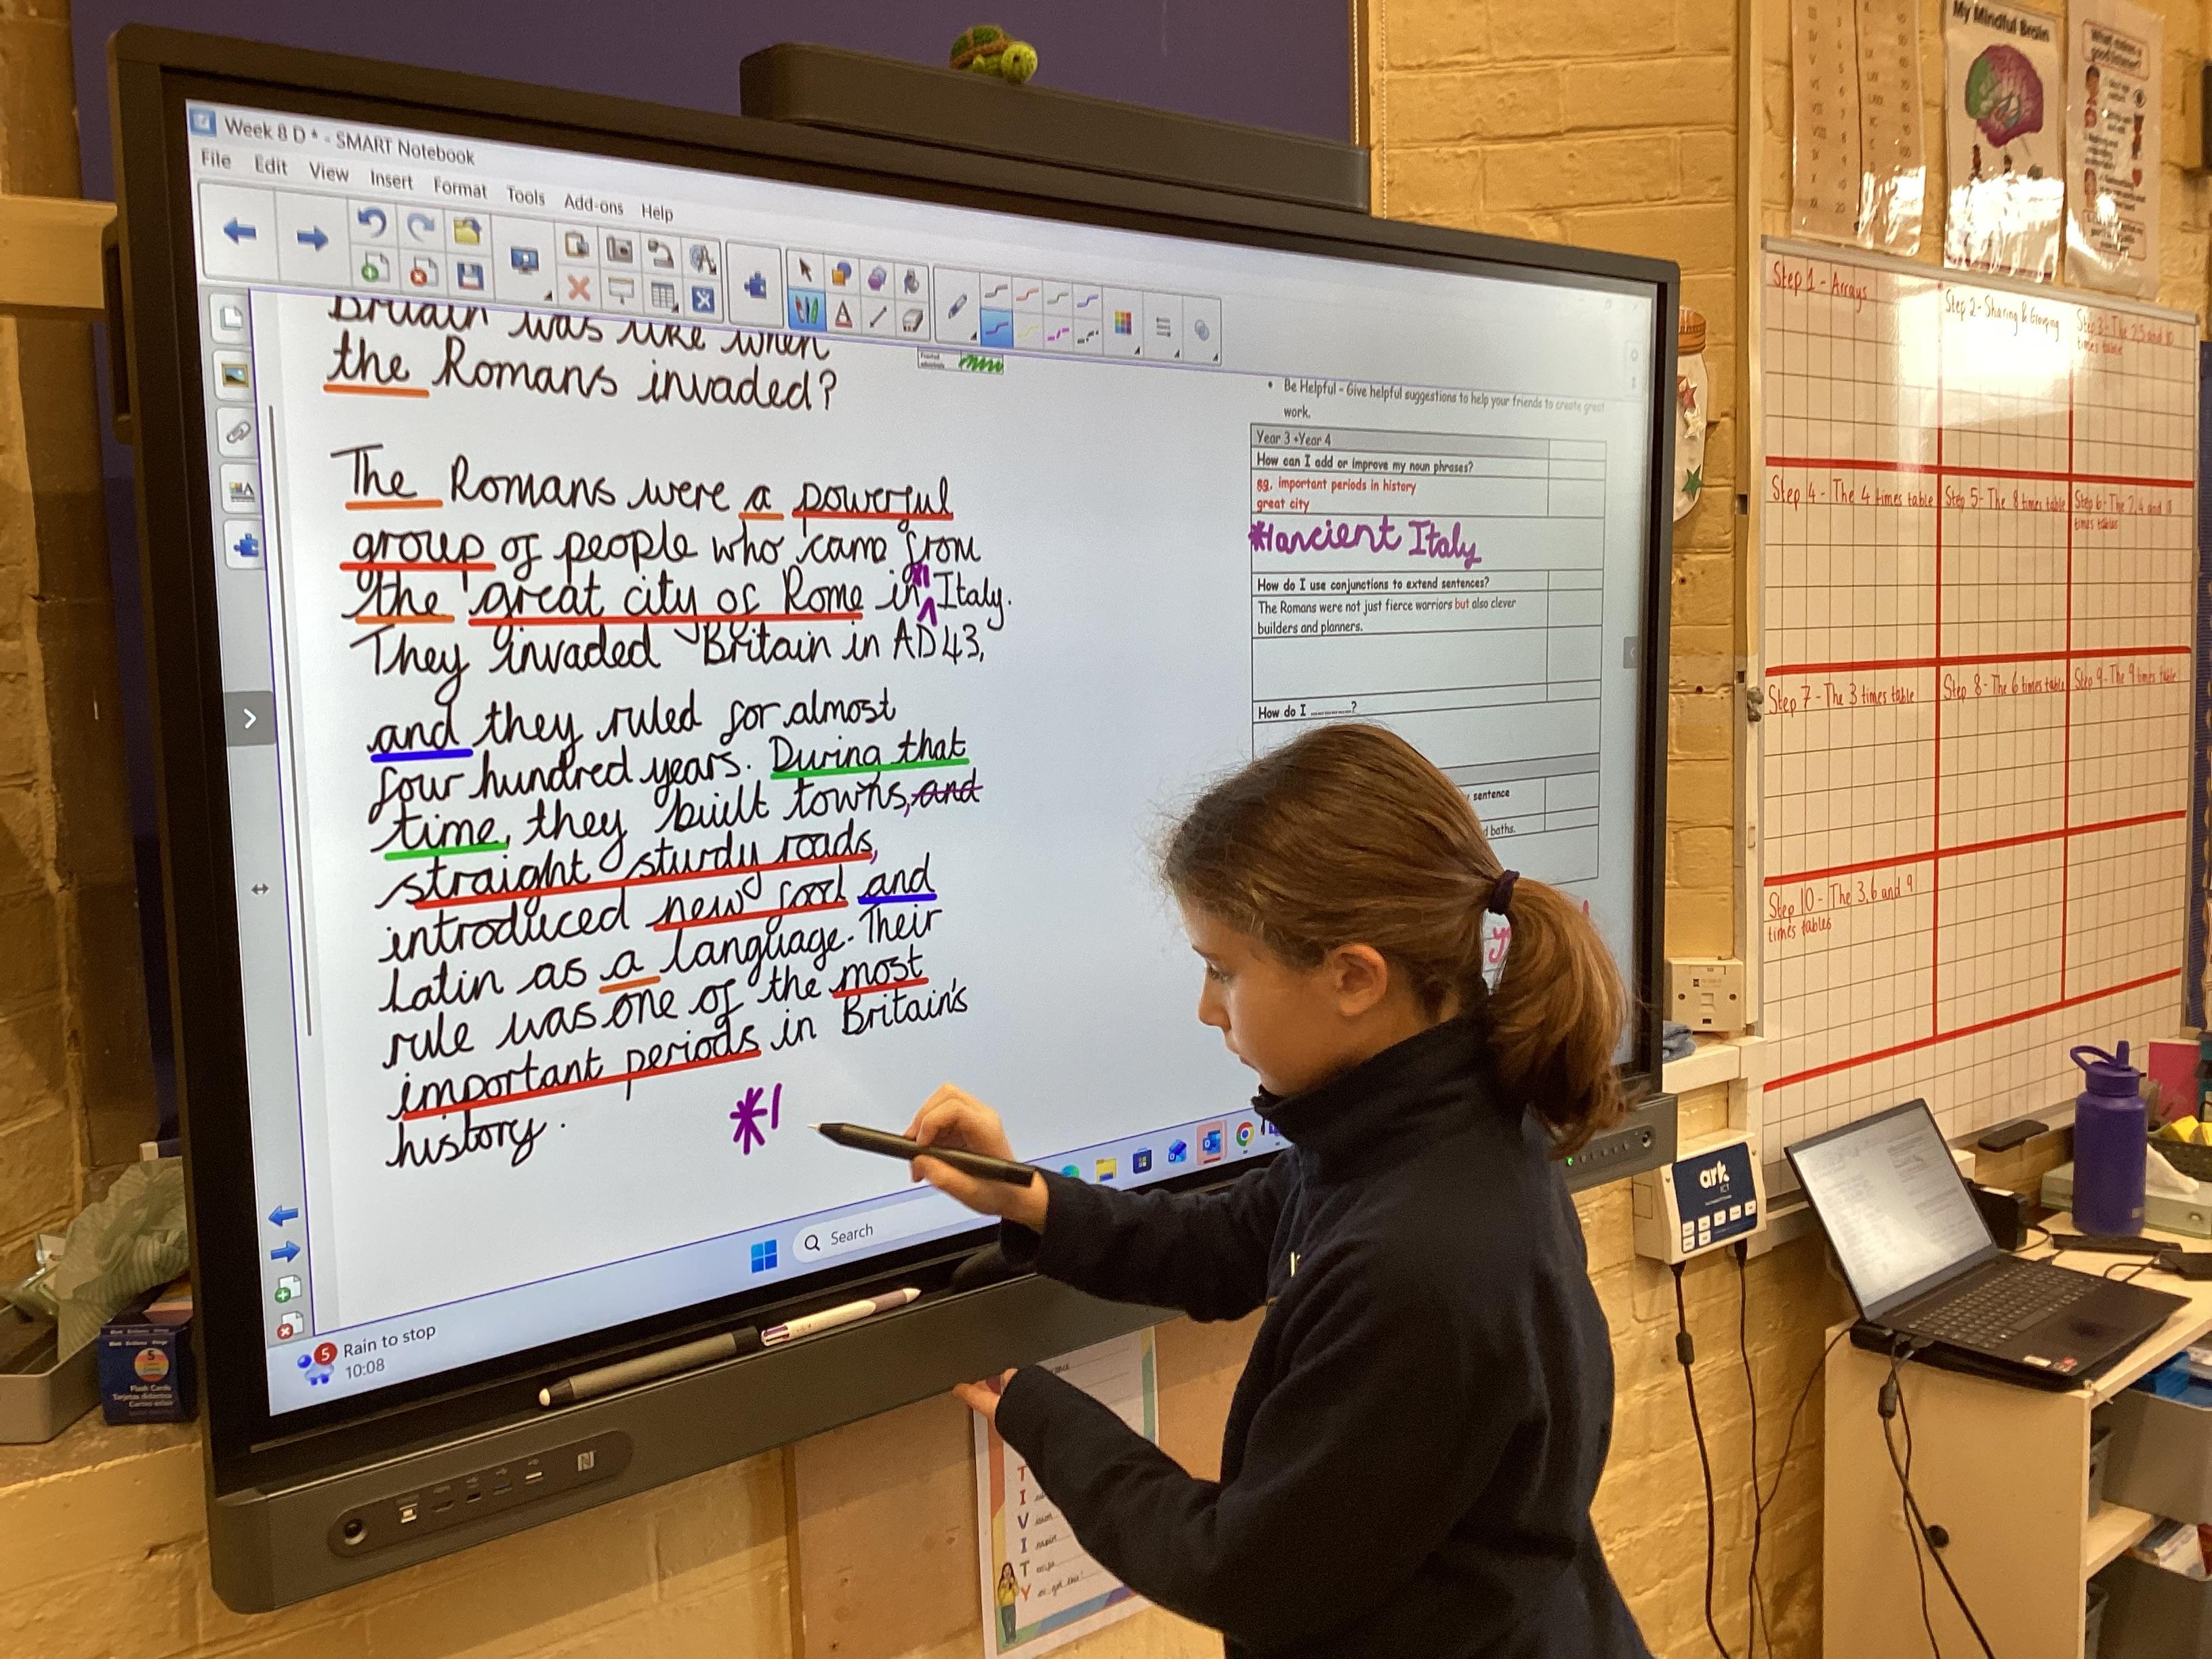 Week 8 D * - SMART Notebook
File Edit View Insert Format Tools Add-ons Help
Britain was like when
the Romans invaded?
The Romans were a powerful
group of people who came from
the great city of Rome in *1 Italy.
They invaded Britain in AD 43,
and they ruled for almost
four hundred years. During that
time, they built towns, and
straight sturdy roads,
introduced new food and
Latin as a language. Their
rule was one of the most
important periods in Britain's
history.
*1
Be Helpful - Give helpful suggestions to help your friends to create great
work.
Year 3 +Year 4
How can I add or improve my noun phrases?
eg. important periods in history
great city
*1 ancient Italy
How do I use conjunctions to extend sentences?
The Romans were not just fierce warriors but also clever
builders and planners.
How do I ______?
sentence
d baths.
Search
5
Rain to stop
10:08
My Mindful Brain
What makes a
good listener?
Step 1 - Arrays
Step 2 - Sharing & Grouping
Step 3 - The 2, 5 and 10
times table
Step 4 - The 4 times table
Step 5 - The 8 times table
Step 6 - The 2, 4 and 8
times tables
Step 7 - The 3 times table
Step 8 - The 6 times table
Step 9 - The 9 times table
Step 10 - The 3, 6 and 9
times tables
ark
ICT
5
Flash Cards
T
I
V
I
T
Y